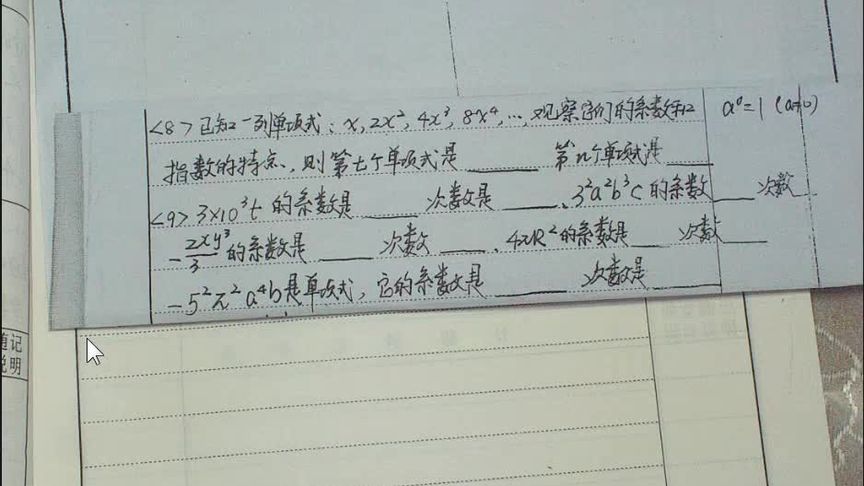 <8>已知一列单项式：x, 2x², 4x³, 8x⁴, …, 观察它们的系数和
指数的特点, 则第七个单项式是____ 第n个单项式是____
a⁰=1 (a≠0)
<9>3×10³t 的系数是____ 次数是____、3²a²b³c 的系数____次数____
-2xy³/3 的系数是____ 次数____、4πR²的系数是____次数____
-5²π²a⁴b是单项式, 它的系数是____ 次数是____
随记
说明